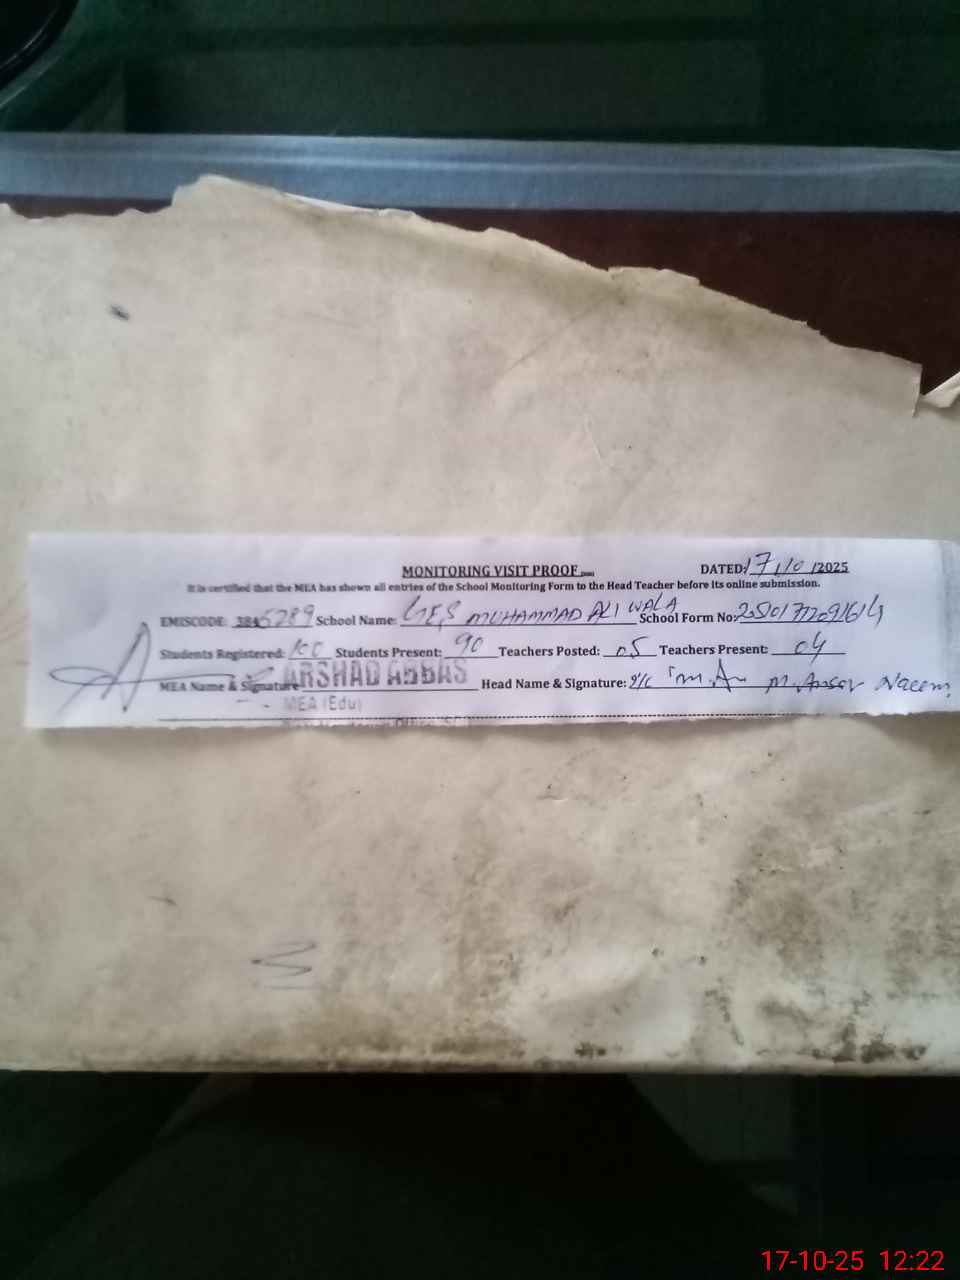 MONITORING VISIT PROOF DATED: 17/10/2025
It is certified that the MEA has shown all entries of the School Monitoring Form to the Head Teacher before its online submission.
EMISCODE: School Name: GES MUHAMMAD ALI WALA School Form No:
Students Registered: Students Present: 90 Teachers Posted: 05 Teachers Present: 04
MEA Name & Signature ARSHAD ABBAS Head Name & Signature: M. Ansar Naeem
MEA (Edu)
17-10-25 12:22